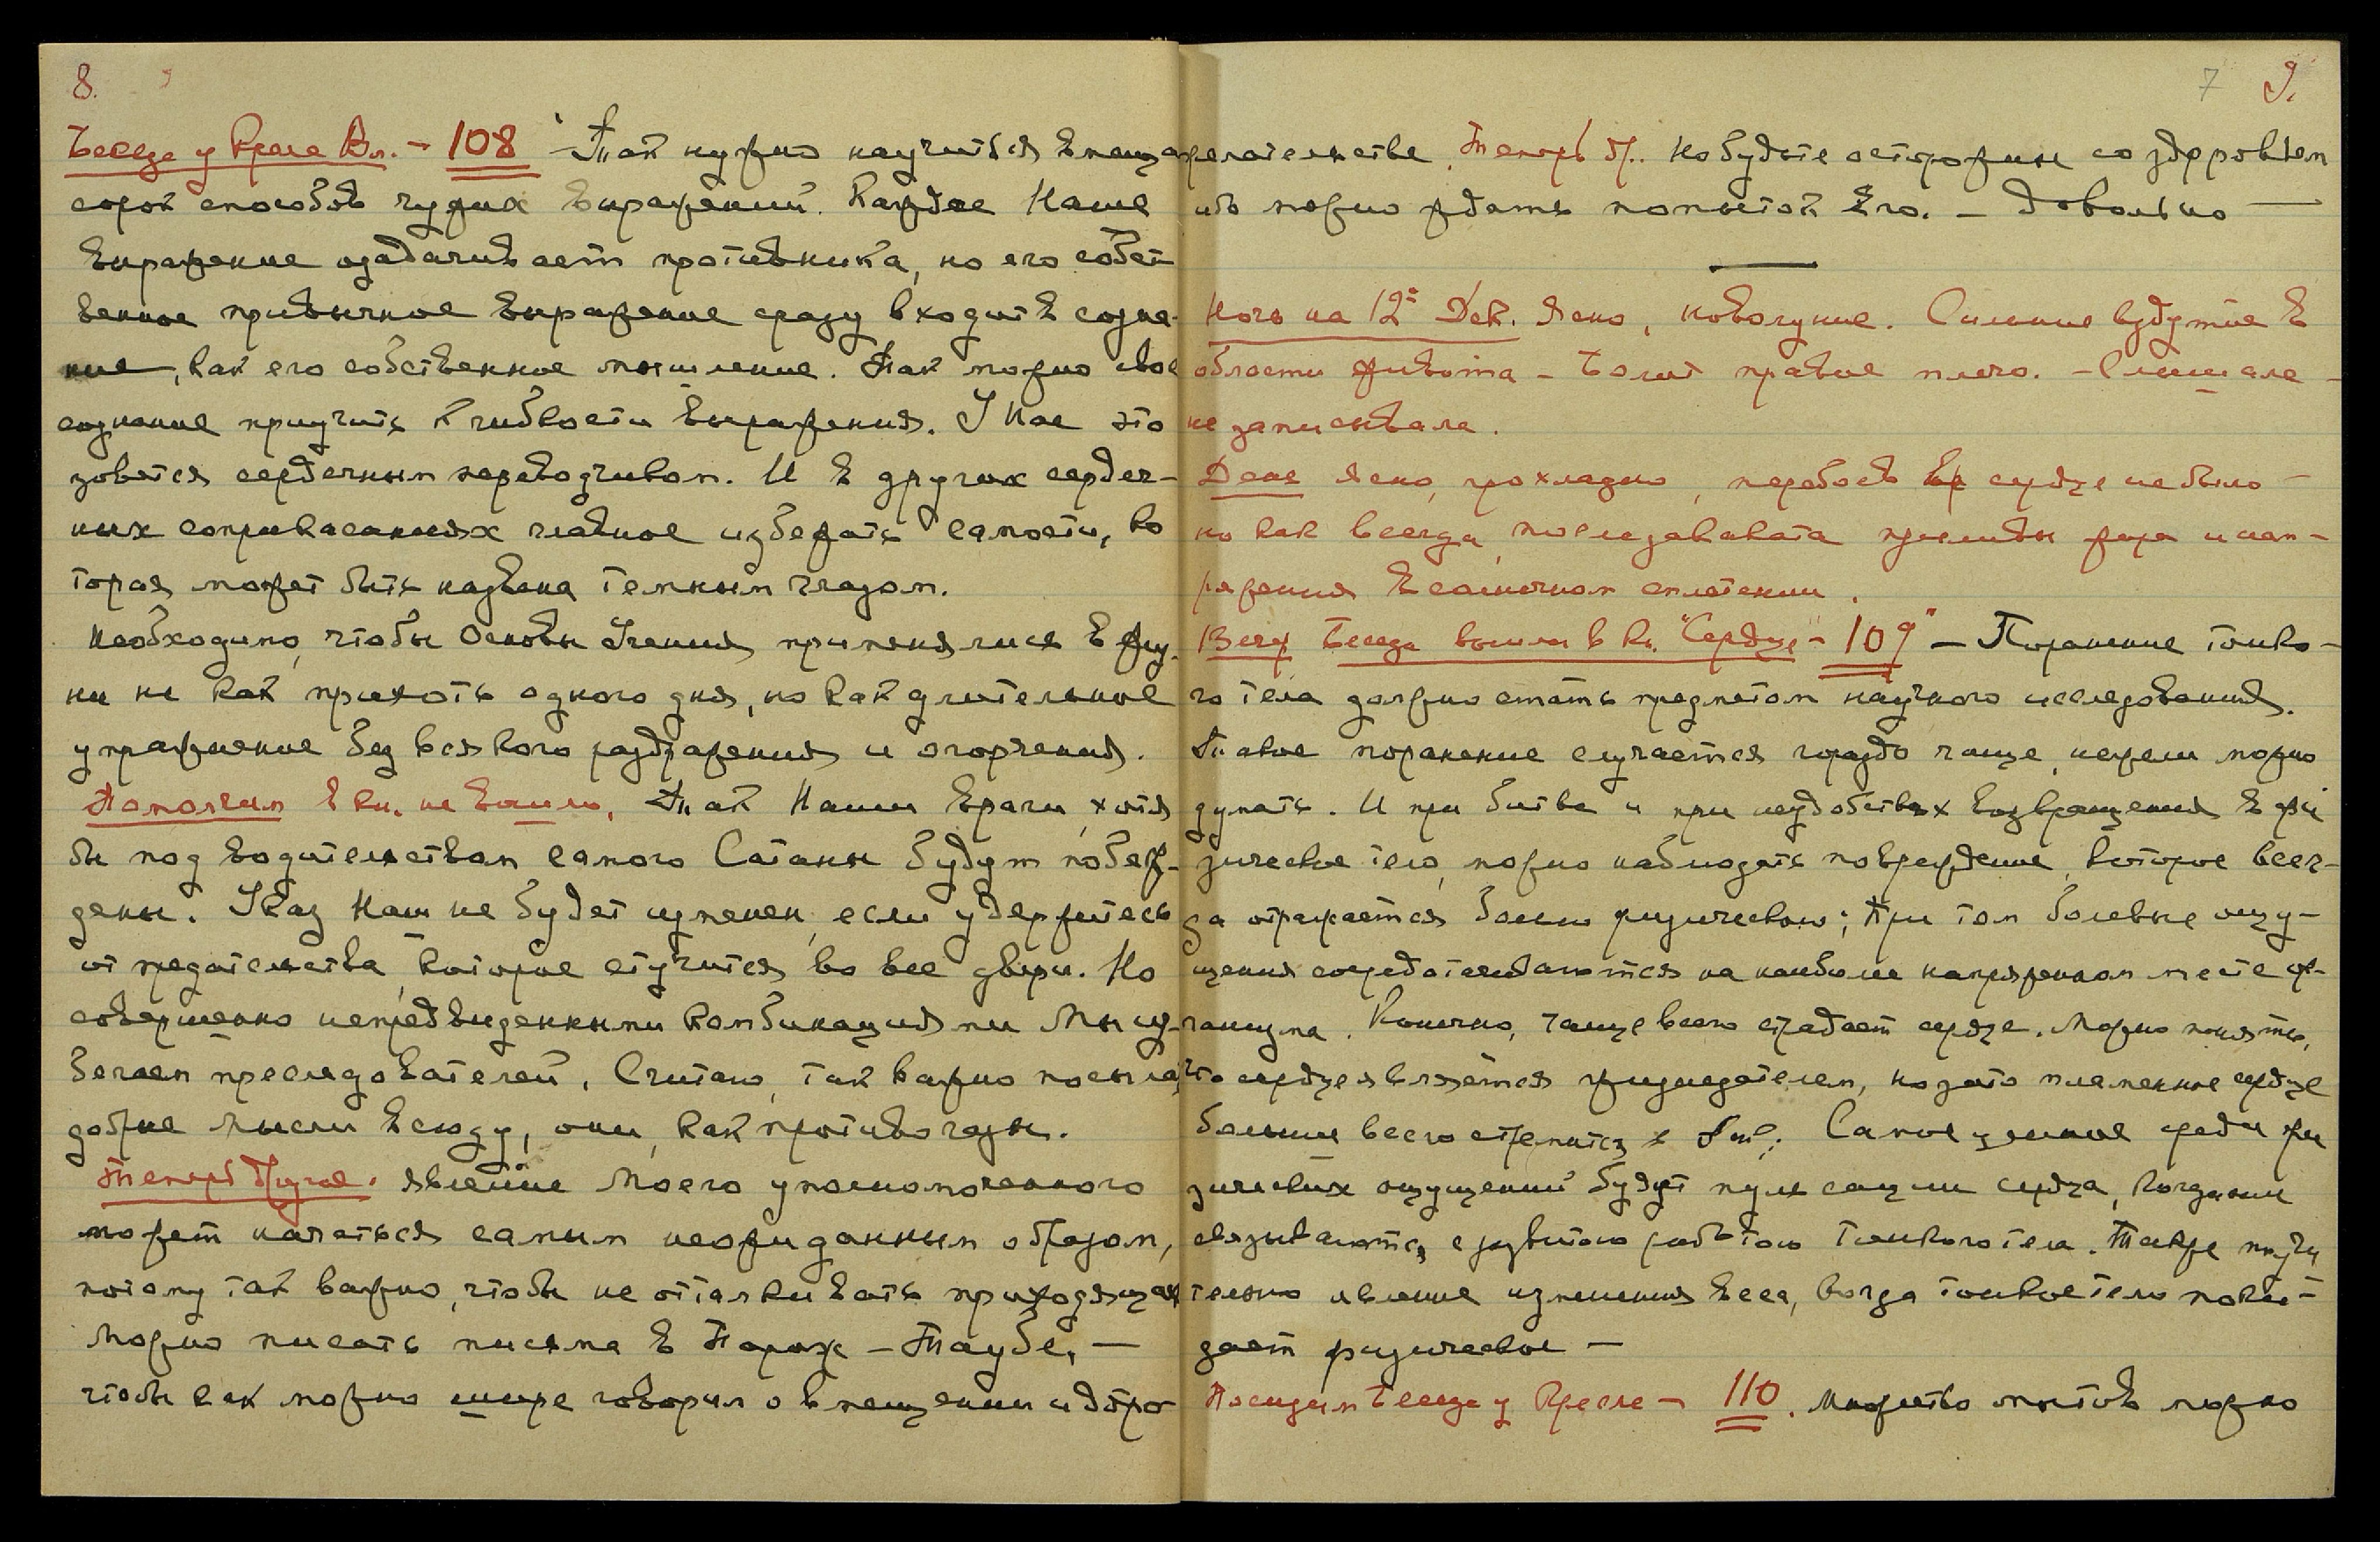 8.
Беседа у Кресла Вл. – 108 Так нужно научиться вмеща
сорок способов чужих выражений. Каждое Наше
выражение озадачивает противника, но его собст
венное привычное выражение сразу входит в созна-
ние, как его собственное мышление. Так можно свое
сознание приучить к гибкости выражения. У Нас это
зовется сердечным переводчиком. И в других сердеч-
ных соприкасаниях главное избежать самости, ко
торая может быть названа темным глазом.
Необходимо, чтобы Основы Учения применялись в жиз-
ни не как прихоть одного дня, но как длительное
упражнение без всякого раздражения и огорчения.
Помолчим в кн. не вошло. Так Наши враги, хотя
бы под водительством самого Сатаны будут побеж-
дены. Указ Наш не будет изменен, если удержитесь
от предательства, которое стучится во все двери. Но
совершенно непредвиденными комбинациями Мы из-
бегаем преследователей. Считаю, так важно посылать
добрые мысли всюду, они, как противогазы.
Теперь другое. явление Моего уполномоченного
может начаться самым неожиданным образом,
потому так важно, чтобы не отталкивать приходящих
Можно писать письма в Париж – Таубе, –
чтобы как можно шире говорил о вмещении и добро-
7 9.
желательстве. Теперь др. Но будьте осторожны со здоровьем
ибо можно ждать попыток Его. – Довольно –
Ночь на 12ое Дек. Ясно, новолуние. Сильное вздутие в
области живота – Болит правое плечо. – Слышала –
не записывала.
День Ясно, прохладно, перебоев в сердце не было –
но как всегда, после завтрака приливы жара и нап-
ряжения в солнечном сплетении.
Вечер Беседа вошли в кн. "Сердце" – 109 – Поранение тонко-
го тела должно стать предметом научного исследования.
Такое поранение случается гораздо чаще, нежели можно
думать. И при битве и при неудобствах возвращения в фи
зическое тело, можно наблюдать повреждение, которое всег-
да отражается болью физическою; При том болевые ощу-
щения сосредотачиваются на наиболее напряженном месте ор-
ганизма. Конечно, чаще всего страдает сердце. Можно понять,
что сердце является жизнедателем, но зато пламенное сердце
больше всего стремится к битве; Самое ценное среди фи
зических ощущений будет пульсации сердца, когда они
связываются с развитою работою тонкого тела. Также поучи
тельно явление изменения веса, когда тонкое тело поки-
дает физическое –
Посидим Беседа у Кресла – 110. Множество опытов можно